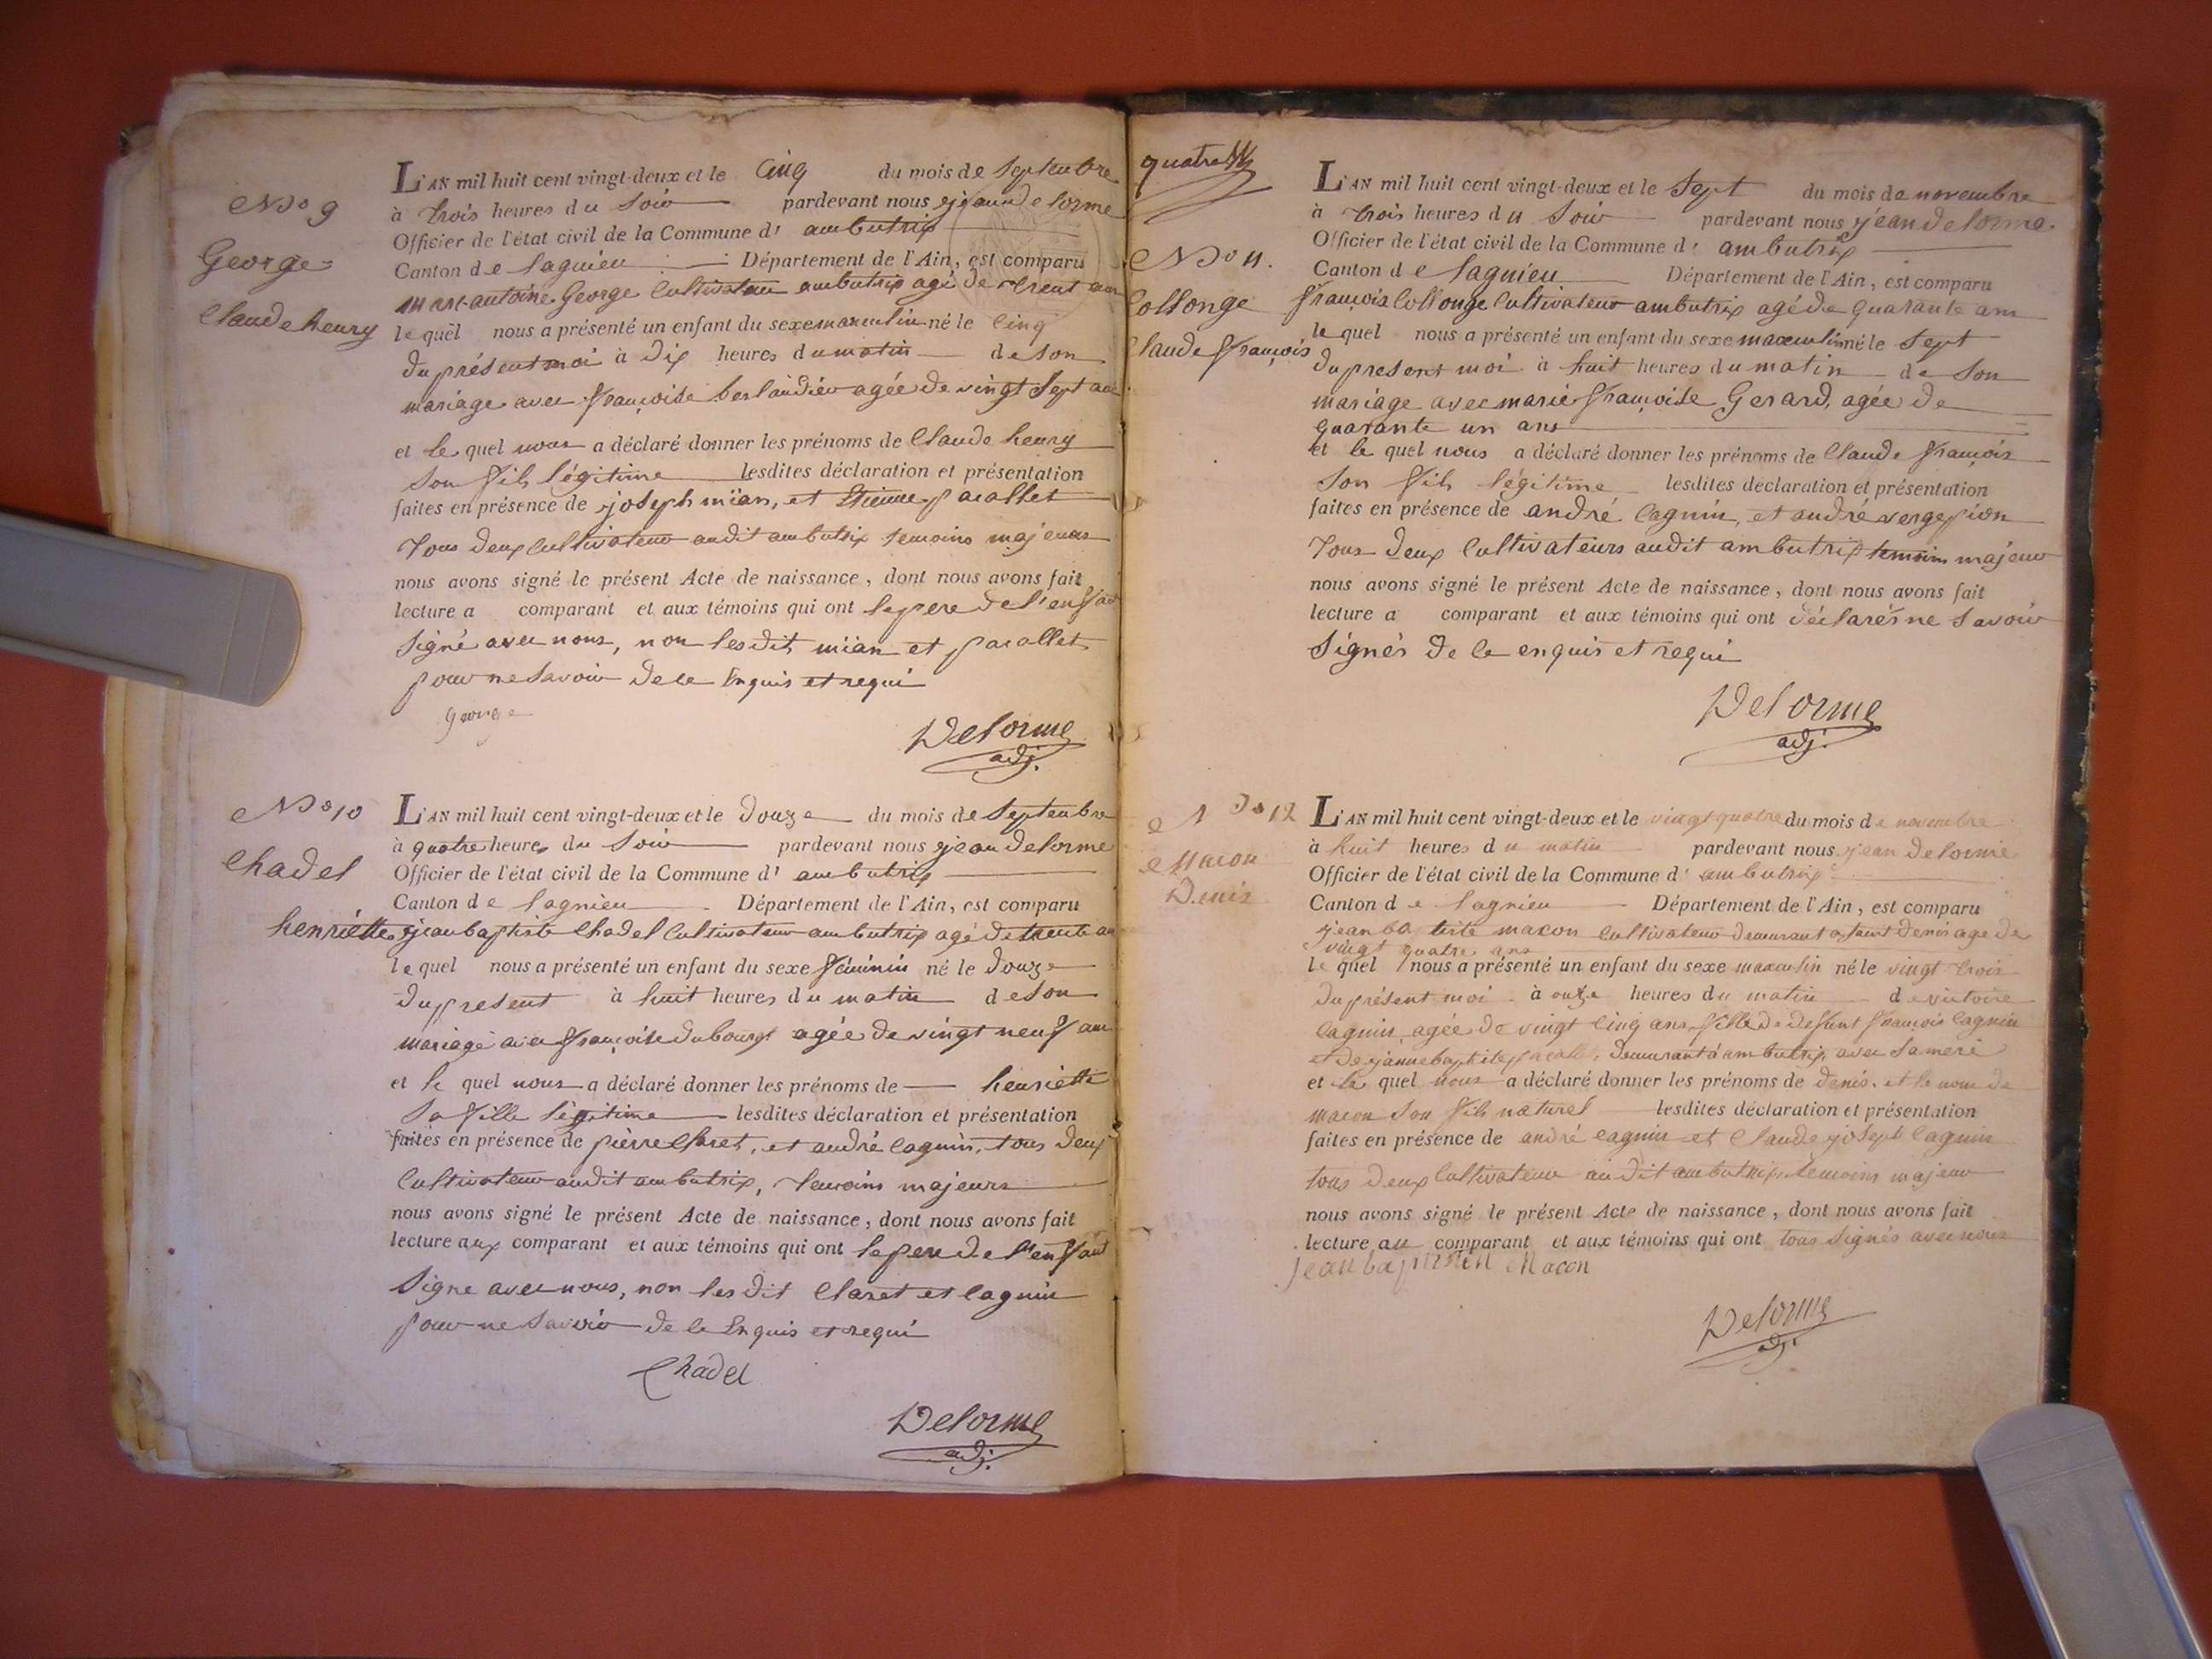 No 9
George
Claude henry
L'AN mil huit cent vingt-deux et le Cinq du mois de Septembre
à trois heures du Soir pardevant nous jean delorme
Officier de l'état civil de la Commune d' ambutrix
Canton de lagnieu Département de l'Ain, est comparu
marc-antoine George Cultivateur ambutrix agé de trent ans
le quel nous a présenté un enfant du sexe masculin né le Cinq
du présent moi à dix heures du matin de son
mariage avec françoise berlandier agée de vingt Sept ans
et le quel nous a déclaré donner les prénoms de Claude henry
son fils légitime lesdites déclaration et présentation
faites en présence de joseph mian, et Etienne pacallet
Tous deux Cultivateur audit ambutrix temoins majeurs
nous avons signé le présent Acte de naissance, dont nous avons fait
lecture a comparant et aux témoins qui ont le pere de l'enfant
Signé avec nous, non lesdit mian et pacallet
pour ne Savoir de ce Enquis et requi
george
Delorme
adj.
No 10
Chadel
henriette
L'AN mil huit cent vingt-deux et le douze du mois de Septembre
à quatre heures du Soir pardevant nous jean delorme
Officier de l'état civil de la Commune d' ambutrix
Canton de lagnieu Département de l'Ain, est comparu
jean baptiste Chadel Cultivateur ambutrix agé de trente an
le quel nous a présenté un enfant du sexe féminin né le douze
du present à huit heures du matin de son
mariage avec françoise dubourg agée de vingt neuf ans
et le quel nous a déclaré donner les prénoms de henriette
Sa fille légitime lesdites déclaration et présentation
faites en présence de pierre Claret, et andré Cagnin, tous deux
Cultivateur audit ambutrix, temoins majeurs
nous avons signé le présent Acte de naissance, dont nous avons fait
lecture aux comparant et aux témoins qui ont le pere de l'enfant
Signe avec nous, non les dit Claret et Cagnin
pour ne Savoir de ce Enquis et requi
Chadel
Delorme
adj.
quatre
No 11.
Collonge
Claude françois
L'AN mil huit cent vingt-deux et le Sept du mois de novembre
à trois heures du Soir pardevant nous jean delorme
Officier de l'état civil de la Commune d' ambutrix
Canton de lagnieu Département de l'Ain, est comparu
françois Collonge Cultivateur ambutrix agé de quarante ans
le quel nous a présenté un enfant du sexe masculin né le Sept
du present moi à huit heures du matin de son
mariage avec marie françoise Gerard, agée de
quarante un ans
et le quel nous a déclaré donner les prénoms de Claude françois
Son fils légitime lesdites déclaration et présentation
faites en présence de andré Cagnin, et andré vergepion
Tous deux Cultivateurs audit ambutrix temoins majeur
nous avons signé le présent Acte de naissance, dont nous avons fait
lecture a comparant et aux témoins qui ont déclarés ne Savoir
Signés de ce enquis et requi
Delorme
adj.
No 12
Macon
Denis
L'AN mil huit cent vingt-deux et le vingt quatre du mois de novembre
à huit heures du matin pardevant nous jean delorme
Officier de l'état civil de la Commune d' ambutrix
Canton de lagnieu Département de l'Ain, est comparu
jean baptiste macon Cultivateur demeurant a saint denis age de
vingt quatre ans
le quel nous a présenté un enfant du sexe masculin né le vingt trois
du présent moi à onze heures du matin de victoire
Cagnin, agée de vingt Cinq ans, fille de defunt françois Cagnin
et de jeanne baptiste pacallet, demeurant à ambutrix avec Sa mere
et le quel nous a déclaré donner les prénoms de denis. et le nom de
macon Son fils naturel lesdites déclaration et présentation
faites en présence de andré cagnin et Claude joseph Cagnin
tous deux Cultivateur audit ambutrix temoins majeur
nous avons signé le présent Acte de naissance, dont nous avons fait
lecture au comparant et aux témoins qui ont tous Signés avec nous
jean baptiste Macon
Delorme
adj.